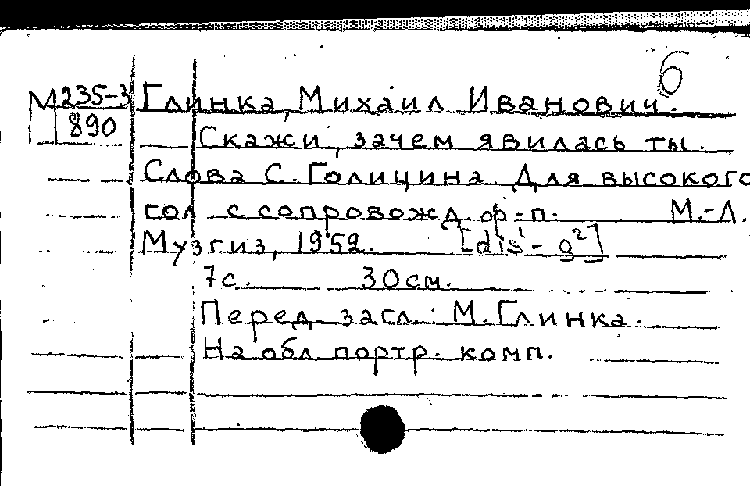 б
М235-3 Глинка, Михаил Иванович.
890 Скажи, зачем явилась ты.
Слова С. Голицина. Для высокого
гол с сопровожд. ф-п. М.-Л.
Музгиз, 1952. [dis¹ - g²]
7с. 30см.
Перед загл.: М. Глинка.
На обл. портр. комп.